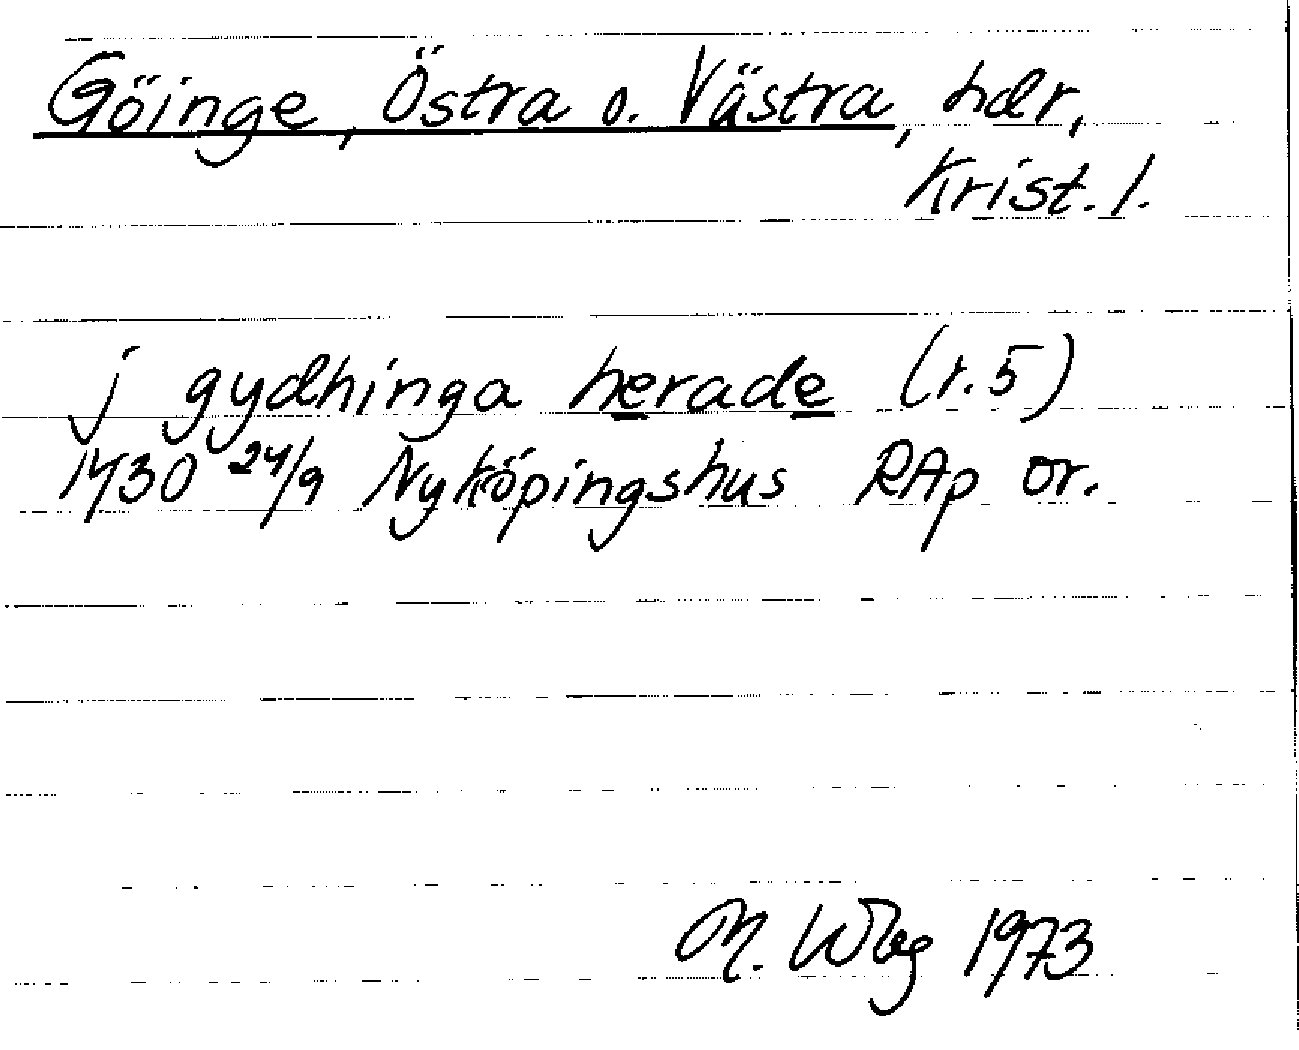 Göinge, Östra o. Västra, hdr,
Krist. l.
j gydhinga herade (r. 5)
1430 24/9 Nyköpingshus RAp or.
M. Wbg 1973